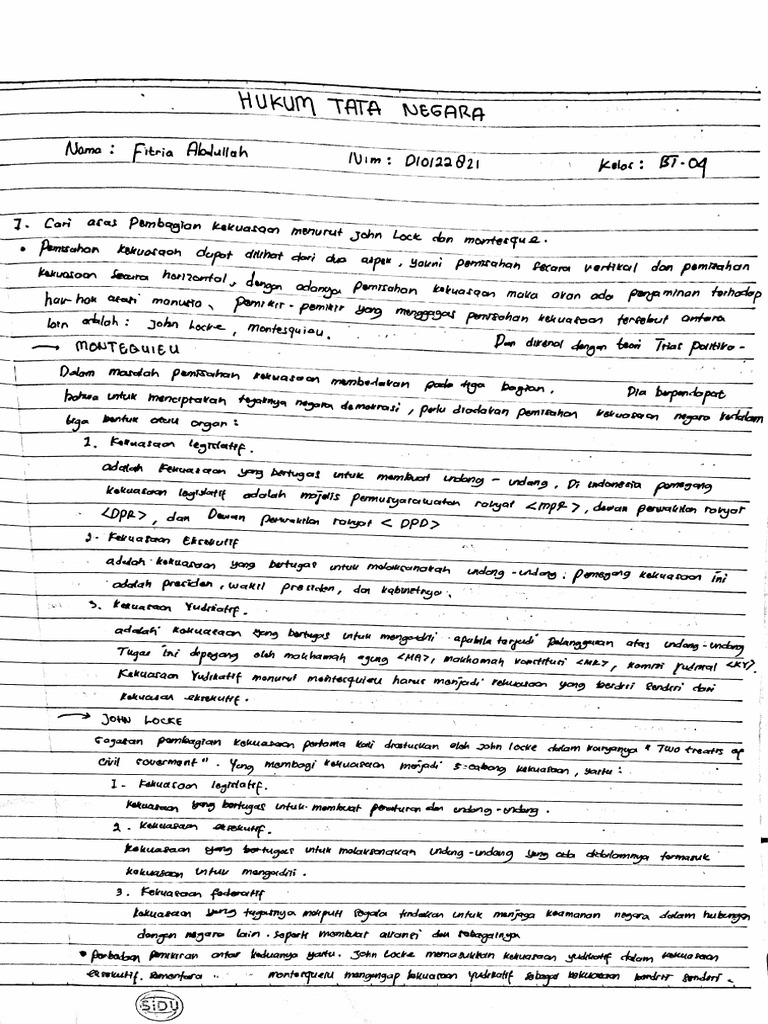 HUKUM TATA NEGARA
Nama : Fitria Abdullah Nim : D10122821 Kelas : BT-09
I. Cari asas Pembagian kekuasaan menurut John Lock dan montesque.
• Pemisahan kekuasaan dapat dilihat dari dua aspek, yakni pemisahan secara vertikal dan pemisahan
kekuasaan secara horizontal, dengan adanya pemisahan kekuasaan maka akan ada penjaminan terhadap
hak-hak asasi manusia. Pemikir-pemikir yang menggagas pemisahan kekuasaan tersebut antara
lain adalah : John Locke, Montesquieu. Dan dikenal dengan teori Trias Politika -
→ MONTEQUIEU
Dalam masalah pemisahan kekuasaan membedakan pada tiga bagian. Dia berpendapat
bahwa untuk menciptakan tegaknya negara demokrasi, perlu diadakan pemisahan kekuasaan negara kedalam
tiga bentuk atau organ :
1. Kekuasaan legislatif.
adalah kekuasaan yang bertugas untuk membuat undang - undang, Di indonesia pemegang
kekuasaan legislatif adalah majelis permusyarawatan rakyat <MPR>, dewan perwakilan rakyat
<DPR>, dan Dewan perwakilan rakyat < DPD>
2. Kekuasaan Eksekutif
adalah kekuasaan yang bertugas untuk melaksanakah undang-undang. pemegang kekuasaan ini
adalah presiden, wakil presiden, dan kabinetnya.
3. Kekuasaan Yudikatif.
adalah kekuasaan yang bertugas untuk mengadili apabila terjadi pelanggaran atas undang-undang
Tugas ini dipegang oleh mahkamah agung <MA>, mahkamah konstitusi <MK>, komisi yudisial <KY>.
Kekuasaan Yudikatif menurut montesquieu harus menjadi kekuasaan yang berdiri sendiri dari
kekuasan eksekutif.
→ JOHN LOCKE
Gagasan pembagian kekuasaan pertama kali dicetuskan oleh John locke dalam karyanya " Two treatis of
civil goverment". Yang membagi kekuasaan menjadi 3 cabang kekuasaan, yaitu :
1. Kekuasaan legislatif.
kekuasaan yang bertugas untuk membuat peraturan dan undang-undang.
2. Kekuasaan eksekutif.
Kekuasaan yang bertugas untuk melaksanakan undang-undang yang ada didalamnya termasuk
kekuasaan untuk mengadili.
3. Kekuasaan federatif
kekuasaan yang tugasnya meliputi segala tindakan untuk menjaga keamanan negara dalam hubungan
dengan negara lain. seperti membuat aliansi dan sebagainya
• perbedaan pemikiran antar keduanya yaitu. John Locke memasukkan kekuasaan yudikatif dalam kekuasaan
eksekutif. sementara montesqueiu menganggap kekuasaan yudikatif sebagai kekuasaan berdiri sendiri.
SIDU